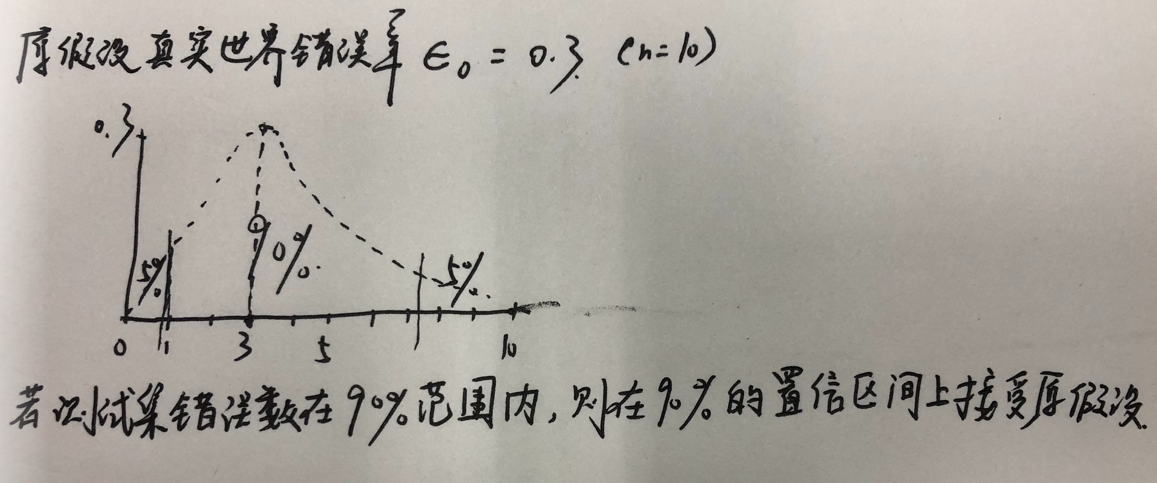 原假设真实世界错误率 ϵ₀ = 0.3 (n=10)
0.3
5% 90% 5%
0 1 3 5 10
若测试集错误数在90%范围内,则在90%的置信区间上接受原假设.